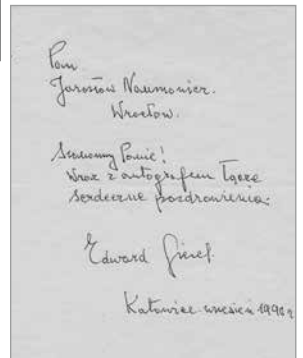 Pan
Jarosław Naumowicz.
Wrocław.
Szanowny Panie!
Wraz z autografem łączę
serdeczne pozdrowienia:
Edward Gierek
Katowice wrzesień 1990 r